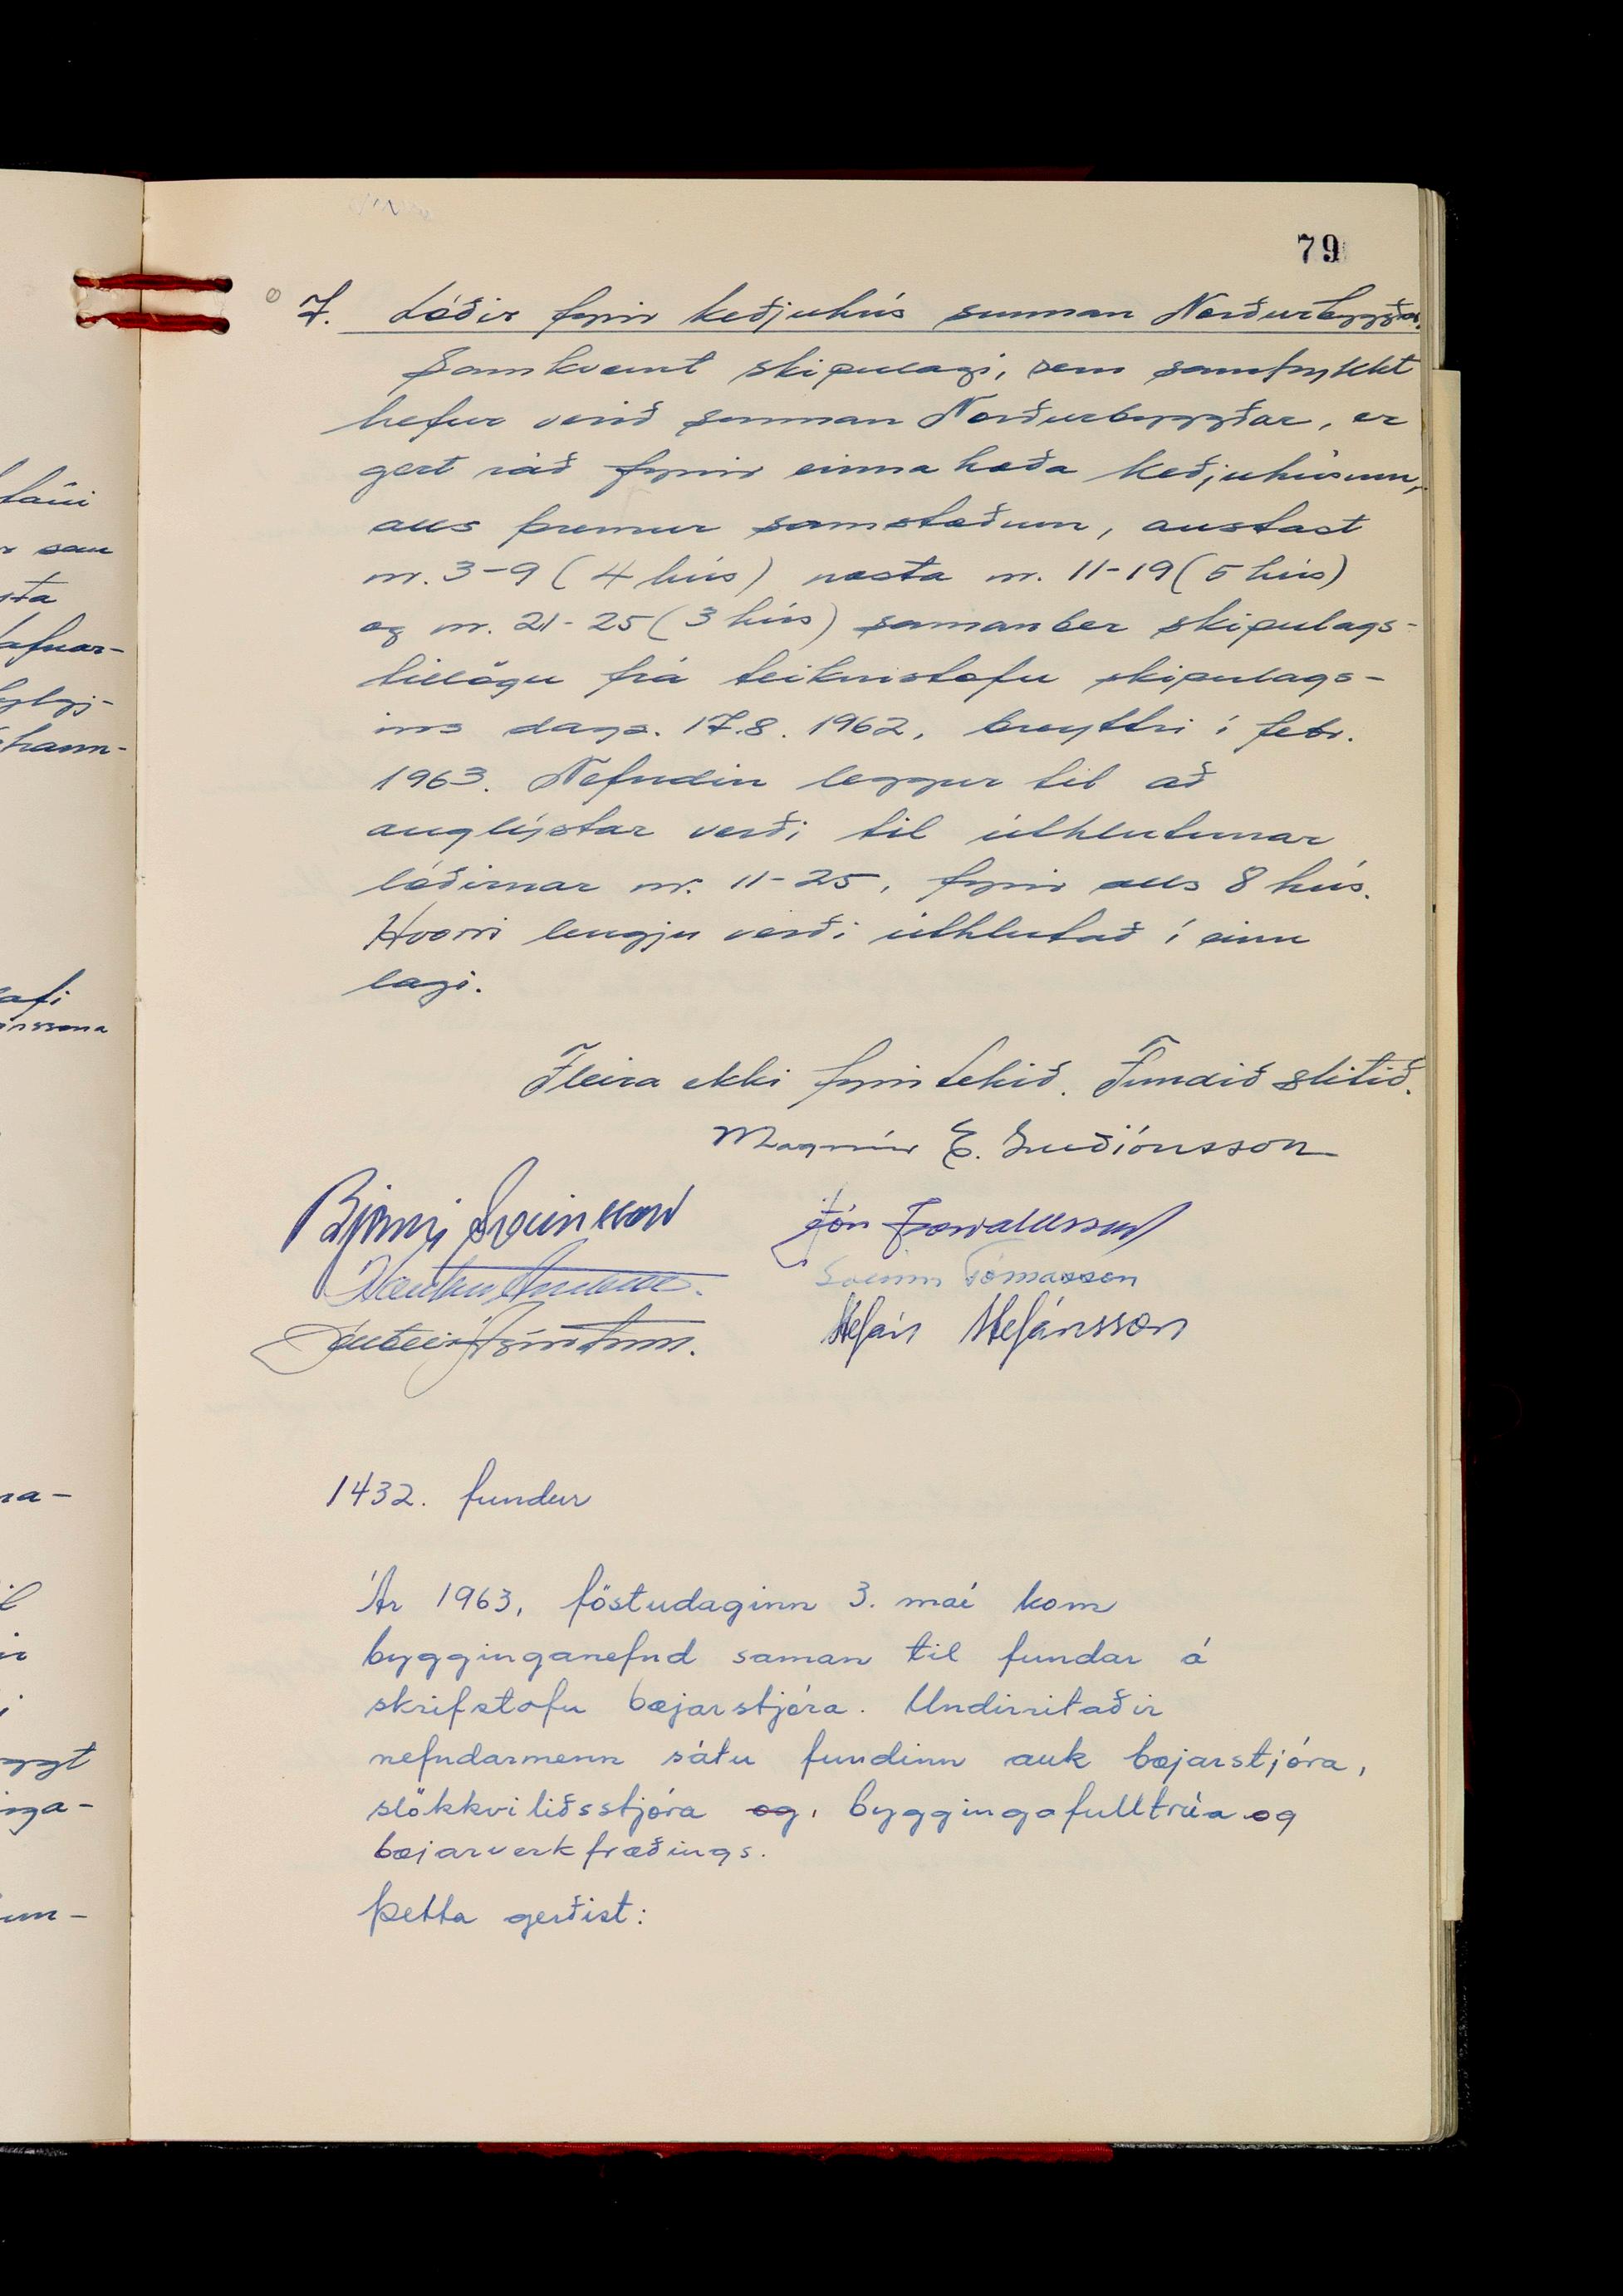 79
7. Lóðir fyrir keðjuhús sunnan Norðurbyggðar.
Samkvæmt skipulagi, sem samþykkt
hefur verið sunnan Norðurbyggðar, er
gert ráð fyrir einna hæða keðjuhúsum,
alls þremur samstæðum, austast
nr. 3-9 (4 hús) næsta nr. 11-19 (5 hús)
og nr. 21-25 (3 hús) samanber skipulags-
tillögu frá teiknistofu skipulags-
ins dags. 17.8. 1962, breyttri í febr.
1963. Nefndin leggur til að
auglýstar verði til úthlutunar
lóðirnar nr. 11-25, fyrir alls 8 hús.
Hverri lengju verði úthlutað í einu
lagi.
Fleira ekki fyrir tekið. Fundið slitið.
Magnús E. Guðjónsson
Jón Þorvaldsson
Sveinn Tómasson
Stefán Stefánsson
1432. fundur
Ár 1963, föstudaginn 3. maí kom
bygginganefnd saman til fundar á
skrifstofu bæjarstjóra. Undirritaðir
nefndarmenn sátu fundinn auk bæjarstjóra,
slökkviliðsstjóra og, byggingafulltrúa og
bæjarverkfræðings.
Þetta gerðist: